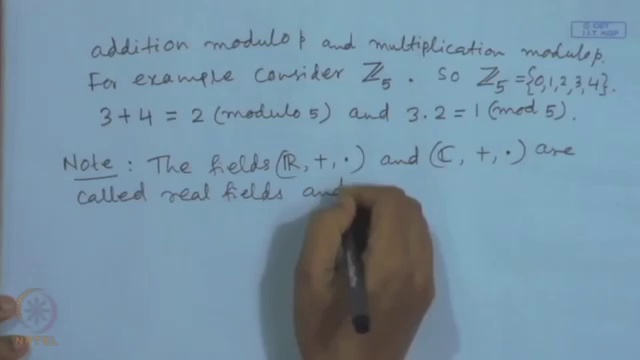 © CET
I.I.T. KGP
addition modulo p and multiplication modulo p.
For example consider ℤ₅. So ℤ₅ = {0,1,2,3,4}.
3+4 = 2 (modulo 5) and 3.2 = 1 (mod 5).
Note: The fields (ℝ, +, ·) and (ℂ, +, ·) are
called real fields and
NPTEL